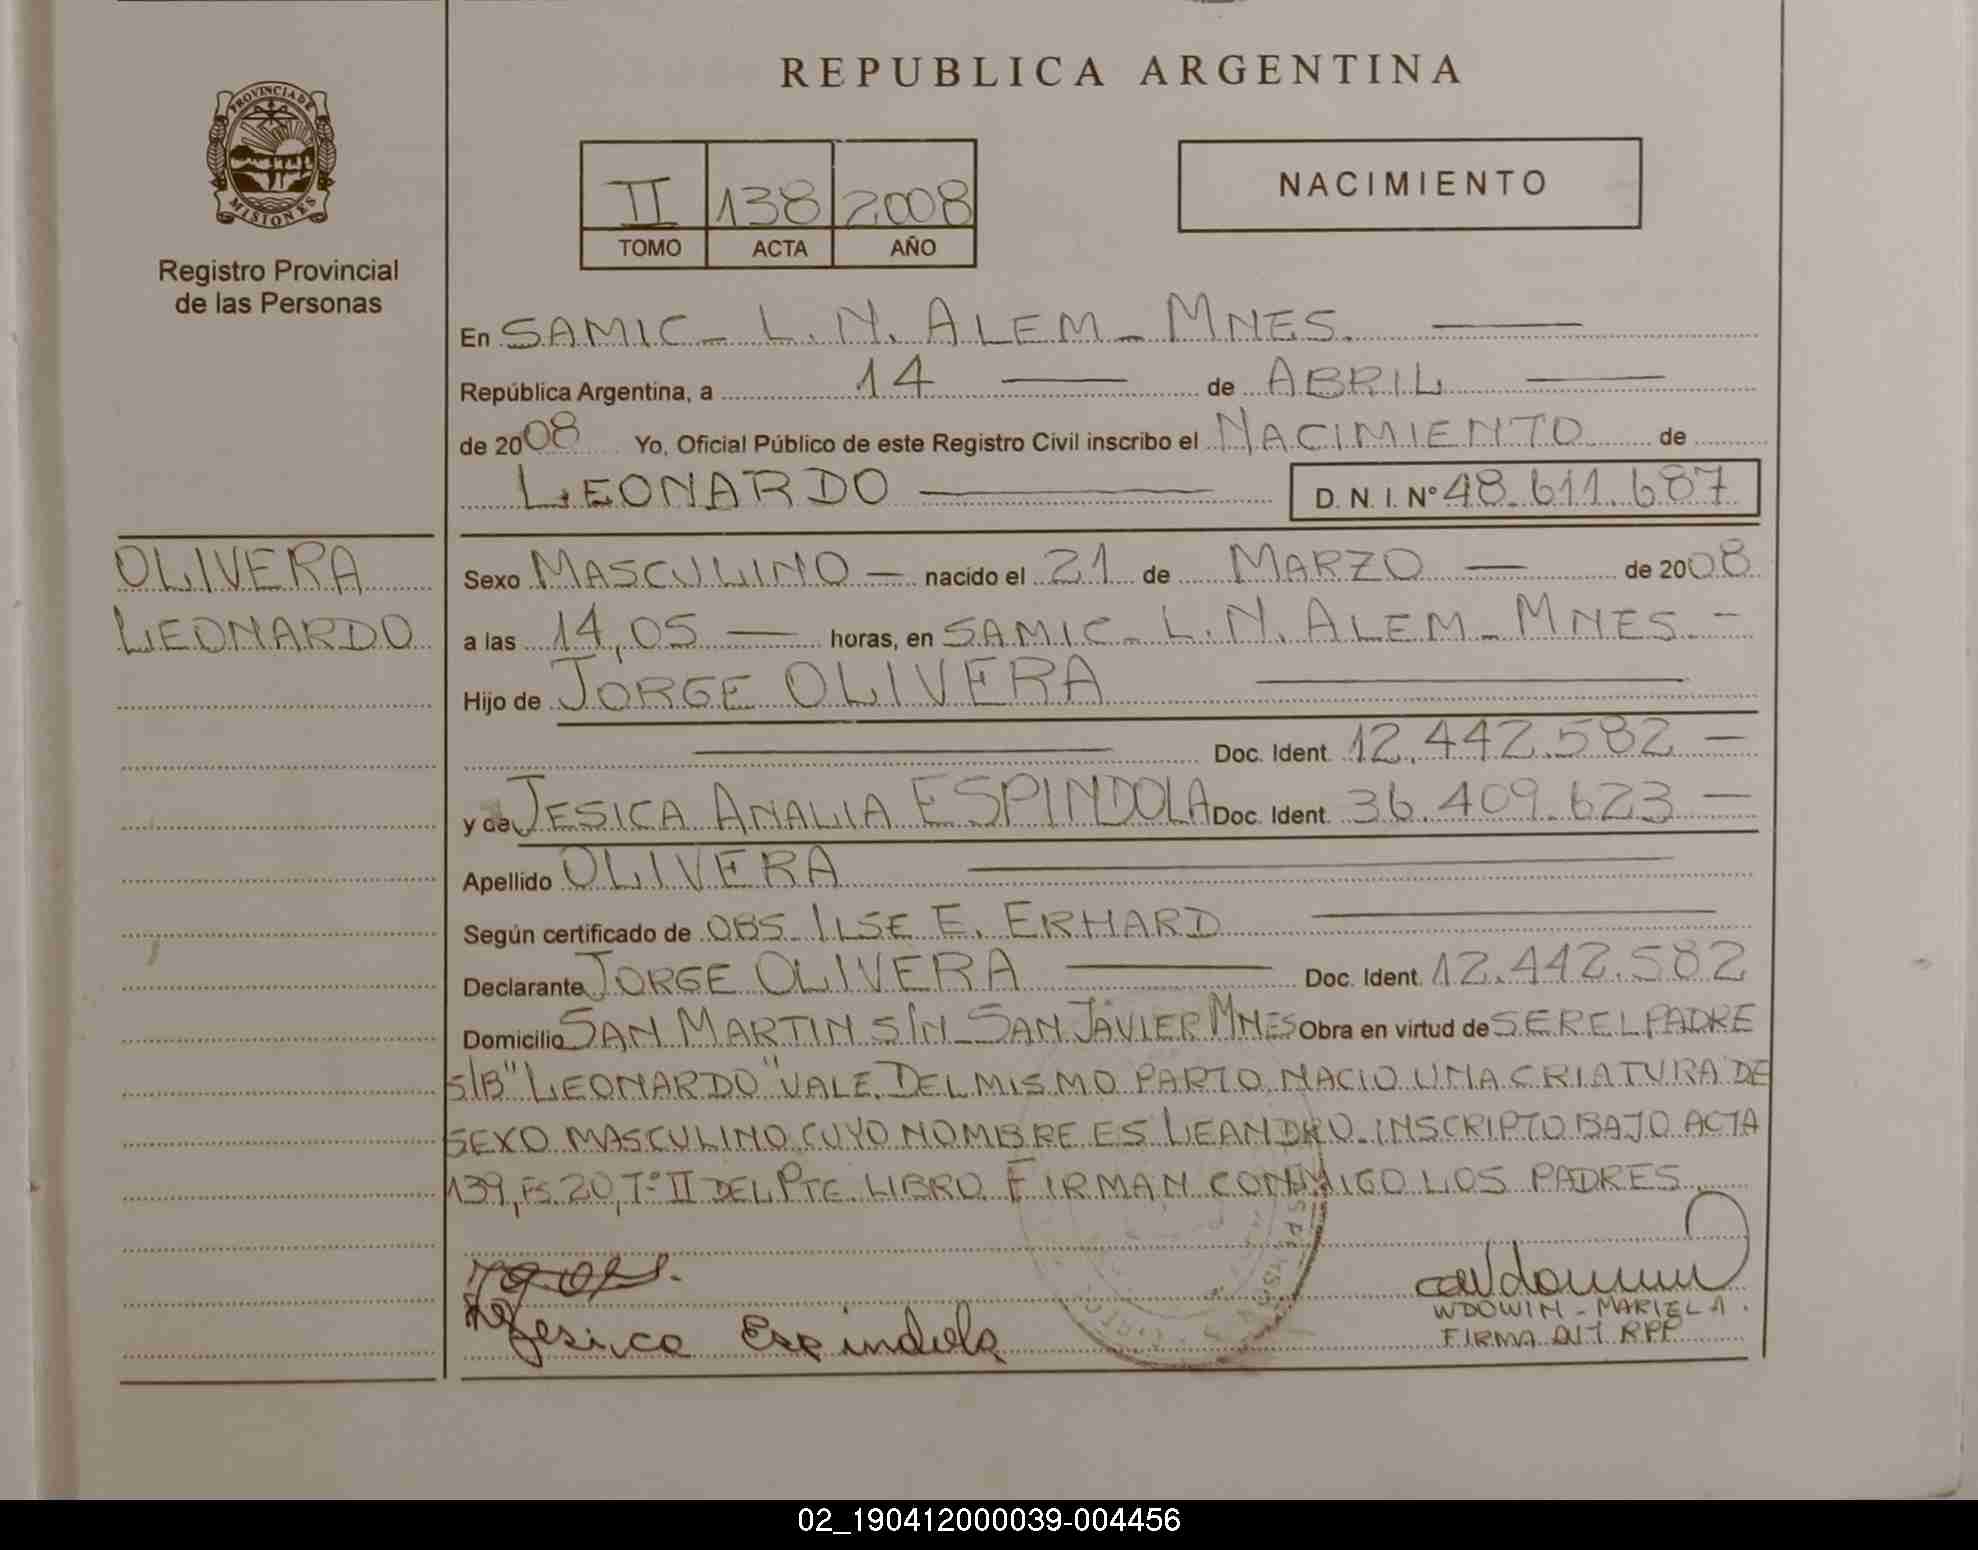 REPUBLICA ARGENTINA
PROVINCIA DE
MISIONES
Registro Provincial
de las Personas
II 138 2008
TOMO ACTA AÑO
NACIMIENTO
En SAMIC - L. N. ALEM - MNES.
República Argentina, a 14 de ABRIL
de 2008 Yo, Oficial Público de este Registro Civil inscribo el NACIMIENTO de
LEONARDO D. N. I. N° 48.611.687
OLIVERA
LEONARDO
Sexo MASCULINO - nacido el 21 de MARZO - de 2008
a las 14,05 - horas, en SAMIC - L. N. ALEM - MNES. -
Hijo de JORGE OLIVERA
Doc. Ident. 12.442.582 -
y de JESICA ANALIA ESPINDOLA Doc. Ident. 36.409.623 -
Apellido OLIVERA
Según certificado de OBS. ILSE E. ERHARD
Declarante JORGE OLIVERA Doc. Ident. 12.442.582
Domicilio SAN MARTIN S/N - SAN JAVIER MNES Obra en virtud de SER EL PADRE
S/B "LEONARDO" VALE. DEL MISMO PARTO NACIO UNA CRIATURA DE
SEXO MASCULINO CUYO NOMBRE ES LEANDRO. INSCRIPTO BAJO ACTA
139, FS. 20, T° II DEL PTE. LIBRO. FIRMAN CONMIGO LOS PADRES.
Jesica Espindola
WDOWIN - MARIEL A.
FIRMA AUT. RPP
02_190412000039-004456